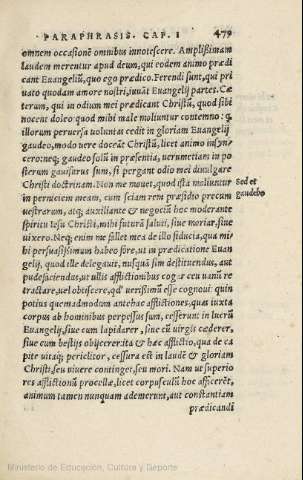 PARAPHRASIS. CAP. I 479
omnem occasionẽ omnibus innotescere. Amplißimam
laudem merentur apud deum, qui eodem animo prædi
cant Euangeliũ, quo ego prædico. Ferendi sunt, qui pri
uato quodam amore nostri, iuuãt Euangelij partes. Cæ
terum, qui in odium mei prædicant Christũ, quod sibi
nocent doleo: quod mihi male moliuntur contemno: q
illorum peruersa volũtas cedit in gloriam Euangelij
gaudeo, modo uere doceãt Christũ, licet animo insyn⸗
cero: neq; gaudeo solũ in præsentia, uerumetiam in po
sterum gauisurus sum, si pergant odio mei diuulgare
Christi doctrinam. Non me mouet, quod ista moliuntur
Sed et
gaudebo
in perniciem meam, cum sciam rem præsidio precum
uestrarum, atq; auxiliante & negociũ hoc moderante
spiritu Iesu Christi, mihi futurã saluti, siue moriar, siue
uixero. Neq; enim me fallet mea de illo fiducia, qua mi⸗
hi persuasißimum habeo fore, ut in prædicatione Euan
gelij, quod ille delegauit, nusquã sim destituendus, aut
pudefaciendus, ut ullis afflictionibus cogar ceu uanũ re
tractare, uel obtiscere, qd' uerißimũ esse cognoui: quin
potius quemadmodum antehac afflictiones, quas iuxta
corpus ab hominibus perpessus sum, cesserunt in lucrũ
Euangelij, siue cum lapidarer, siue cũ uirgis cæderer,
siue cum bestijs obijcerer: ita & hac afflictio, qua de ca
pite uitaq; periclitor, cessura est in laudẽ & gloriam
Christi, seu uiuere continget, seu mori. Nam ut superio
res afflictionũ procellæ, licet corpusculũ hoc afficerẽt,
animum tamen nunquam ademerunt, aut constantiam
prædicandi
Ministerio de Educación, Cultura y Deporte